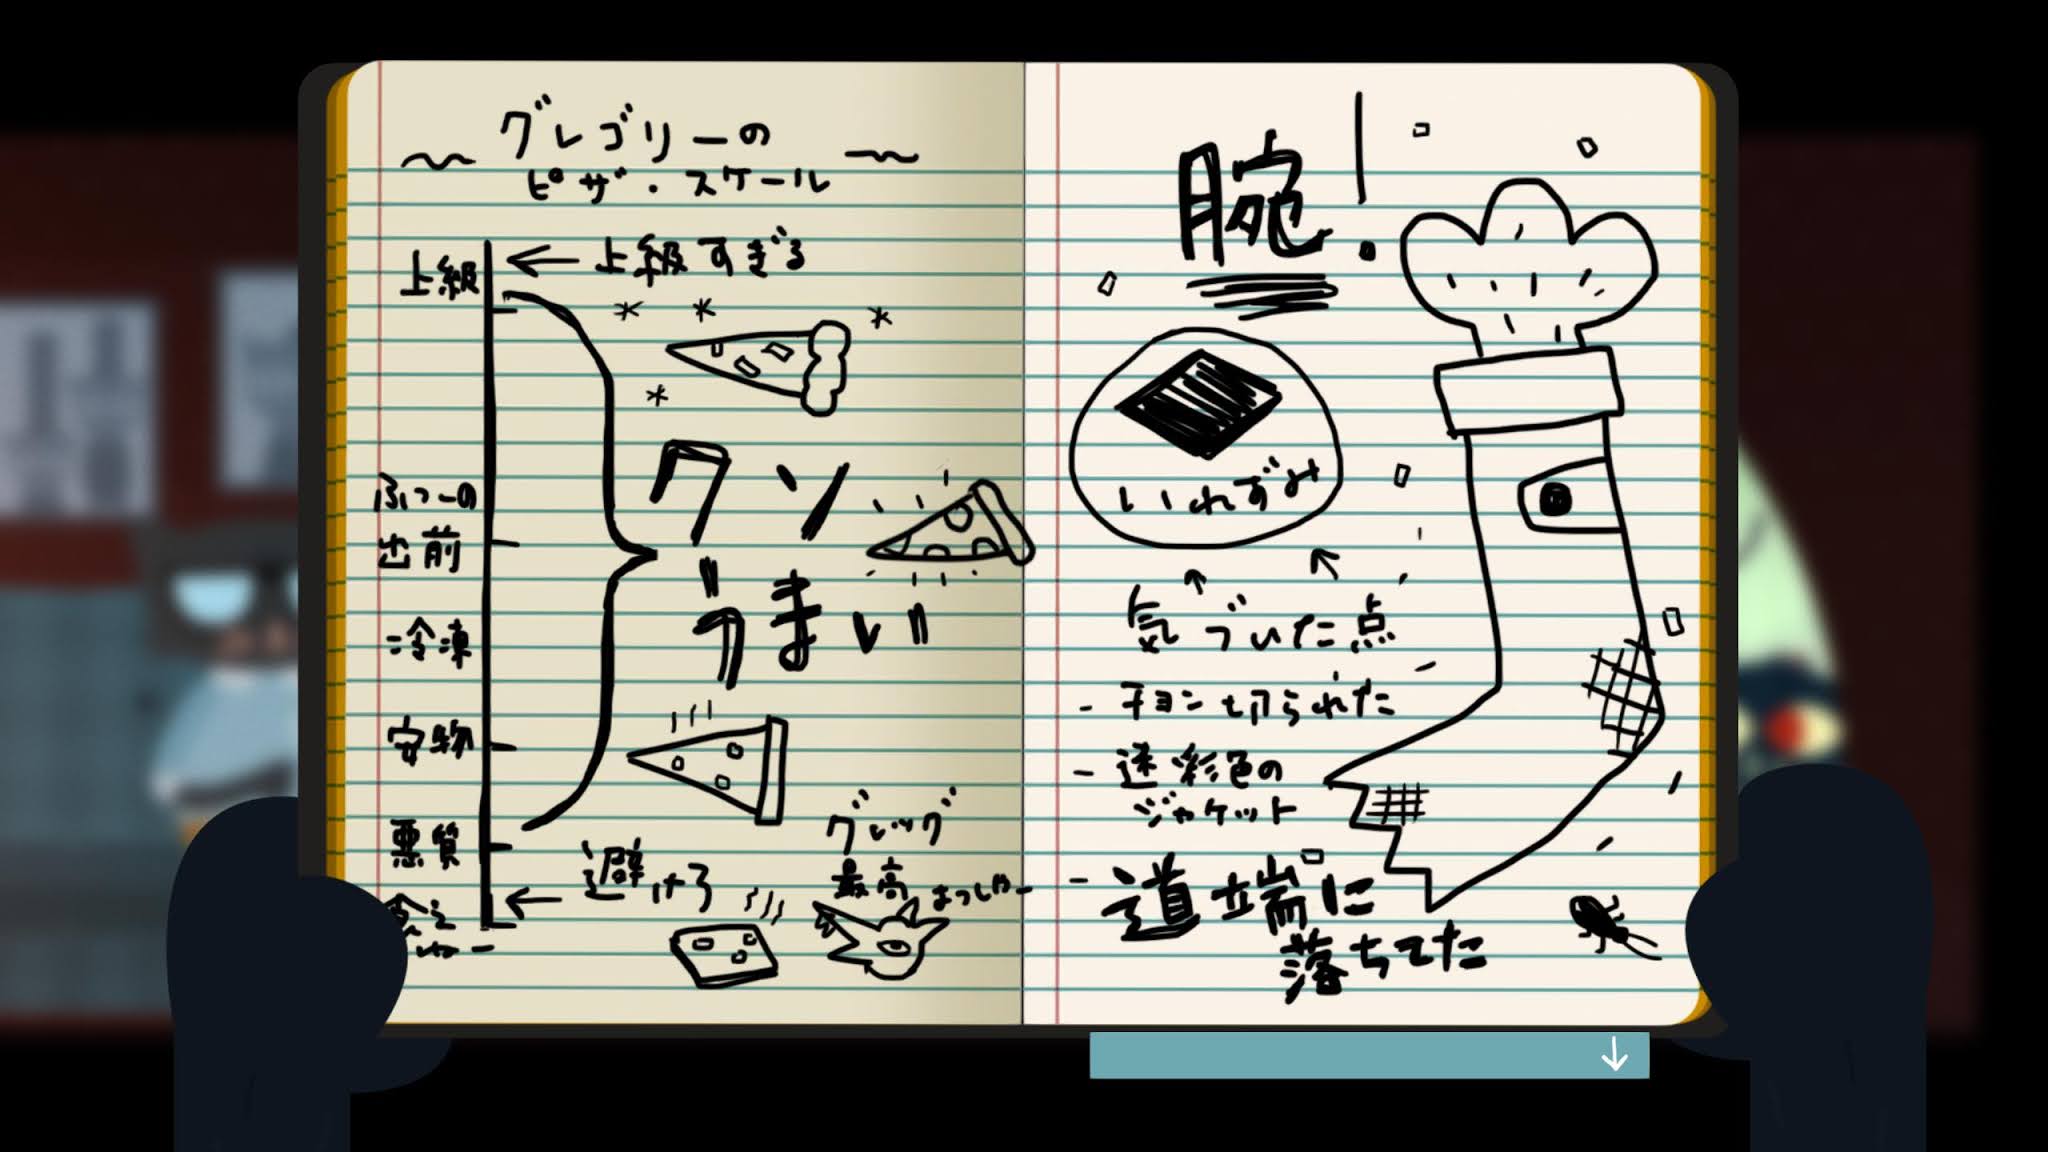 グレゴリーの
ピザ・スケール
上級
上級すぎる
ふつーの
出前
クソ
うまい
冷凍
安物
悪質
避けろ
グレッグ
最高
腕!
いれずみ
気づいた点
- チョン切られた
- 迷彩色の
ジャケット
- 道端に
落ちてた